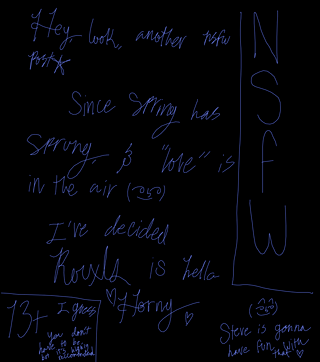 Hey, look, another nsfw
Post☆
Since Spring has
Sprung, & "love" is
in the air (
I've decided
Rouxls is hella
♡Horny♡
NSFW
13+ I guess
you don't
have to be
it's highly
recommended
Steve is gonna
have fun with
that♡